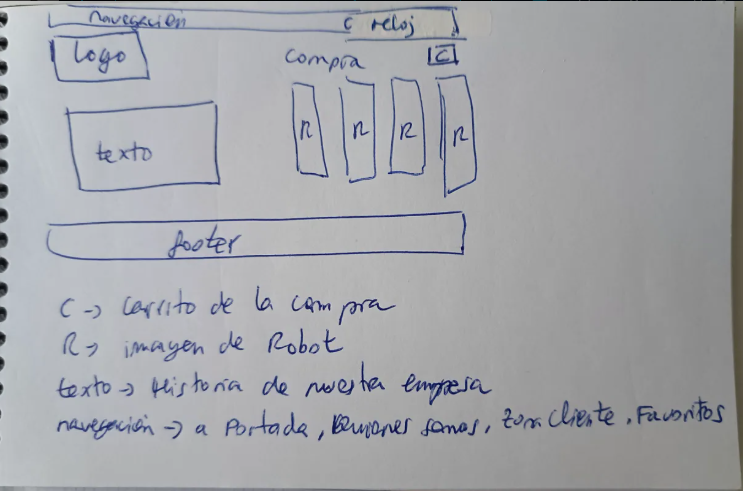 navegación C reloj
Logo
Compra C
texto
R R R R
footer
C → Carrito de la compra
R → imagen de Robot
texto → Historia de nuestra empresa
navegación → a Portada, , Zona Cliente, Favoritos